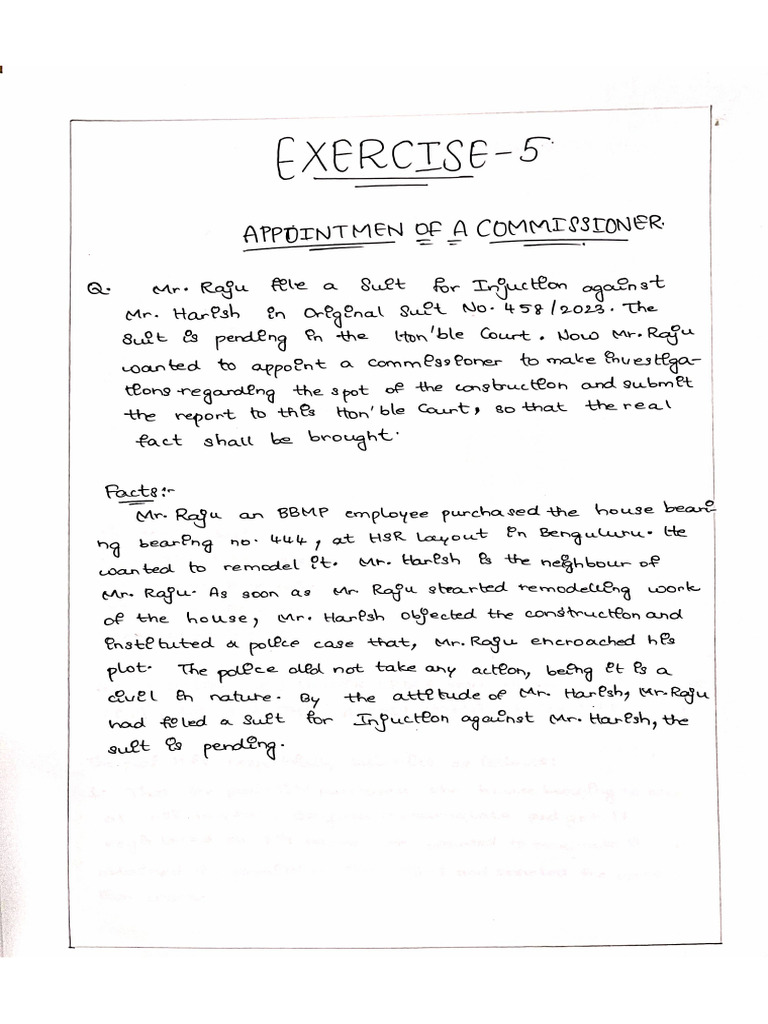 EXERCISE-5
APPOINTMEN OF A COMMISSIONER.
Q. Mr. Raju file a Suit for Injuction against
Mr. Harish in Original Suit No. 458/2023. The
Suit is pending in the Hon'ble Court. Now Mr. Raju
wanted to appoint a commissioner to make investiga-
tions regarding the spot of the construction and submit
the report to this Hon'ble Court, so that the real
fact shall be brought.
Facts:-
Mr. Raju an BBMP employee purchased the house beari
ng bearing no. 444, at HSR Layout in Benguluru. He
wanted to remodel it. Mr. Harish is the neighbour of
Mr. Raju. As soon as Mr Raju started remodelling work
of the house, Mr. Harish objected the construction and
instituted a police case that, Mr. Raju encroached his
plot. The police did not take any action, being it is a
civil in nature. By the attitude of Mr. Harish, Mr. Raju
had filed a Suit for Injuction against Mr. Harish, the
suit is pending.